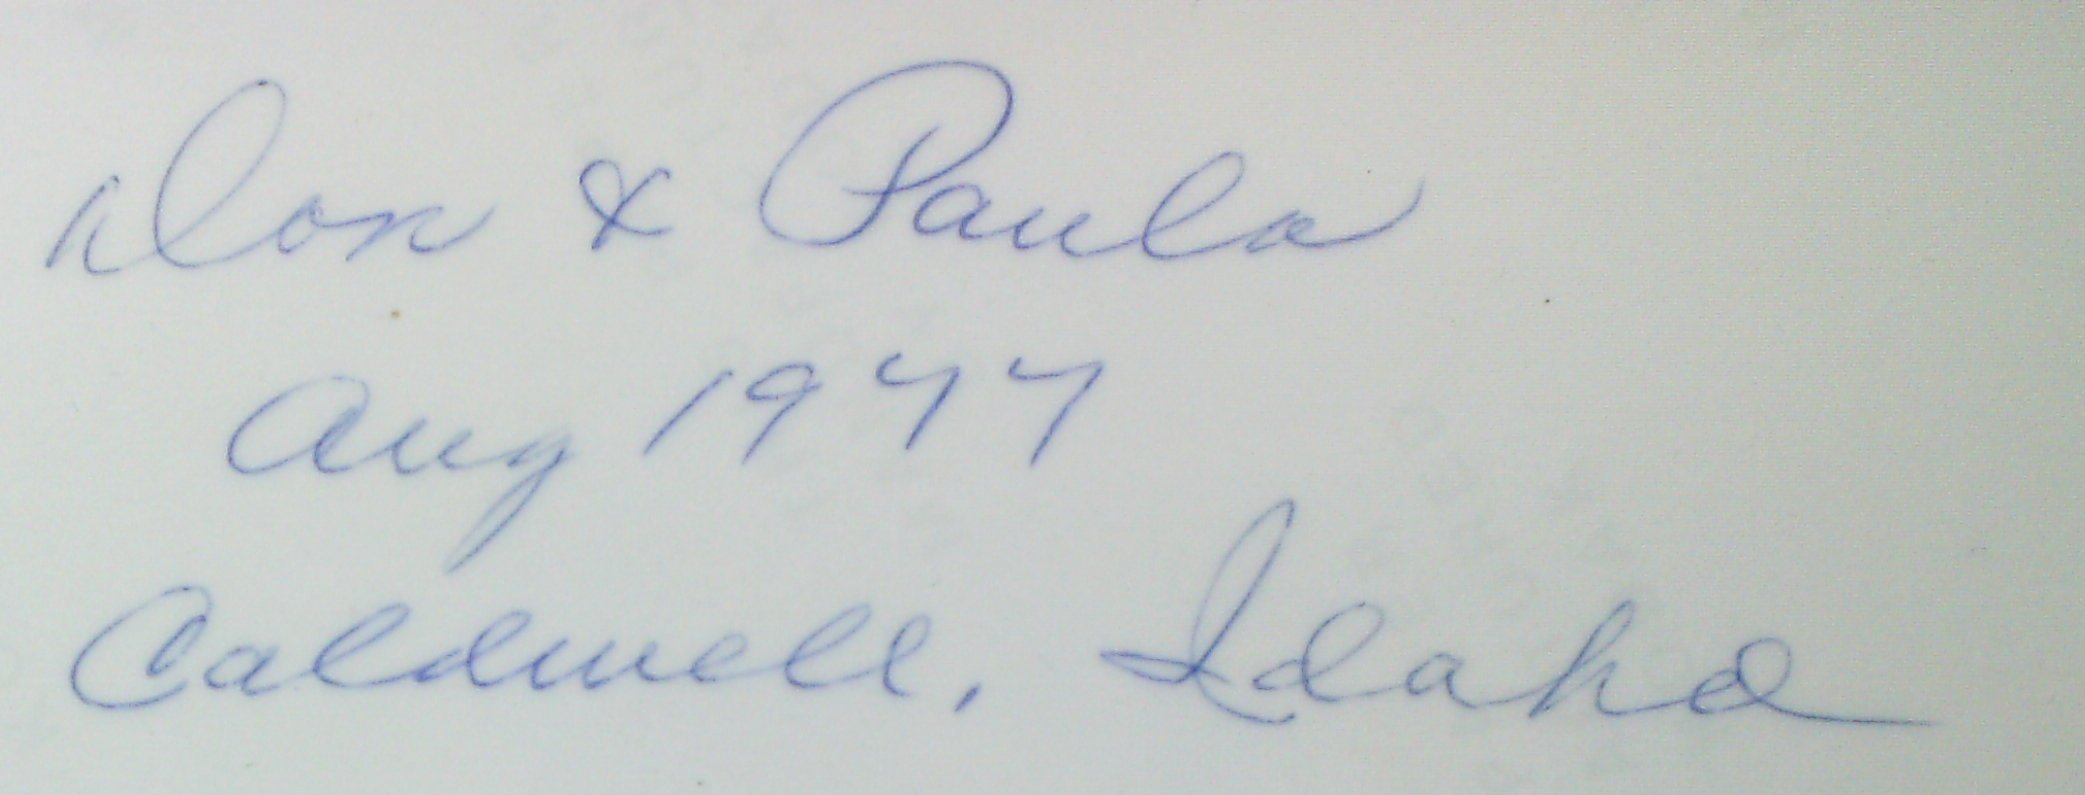 Don & Paula
Aug 1977
Caldwell, Idaho